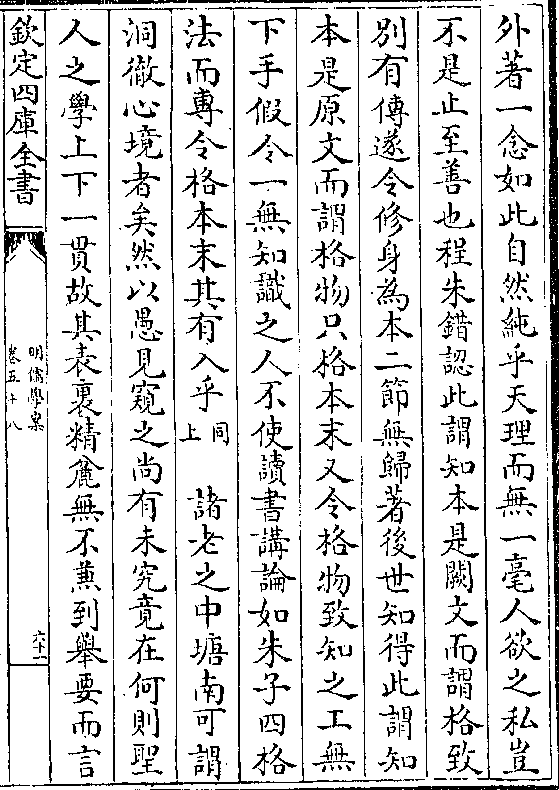 外著一念如此自然純乎天理而無一毫人欲之私豈
不是止至善也程朱錯認此謂知本是闕文而謂格致
別有傳遂令修身為本二節無歸著後世知得此謂知
本是原文而謂格物只格本末又令格物致知之工無
下手假令一無知識之人不使讀書講論如朱子四格
法而專令格本末其有入乎同上　諸老之中塘南可謂
洞徹心境者矣然以愚見窺之尚有未究竟在何則聖
人之學上下一貫故其表裏精麄無不兼到舉要而言
欽定四庫全書
明儒學案
卷五十八
六十一